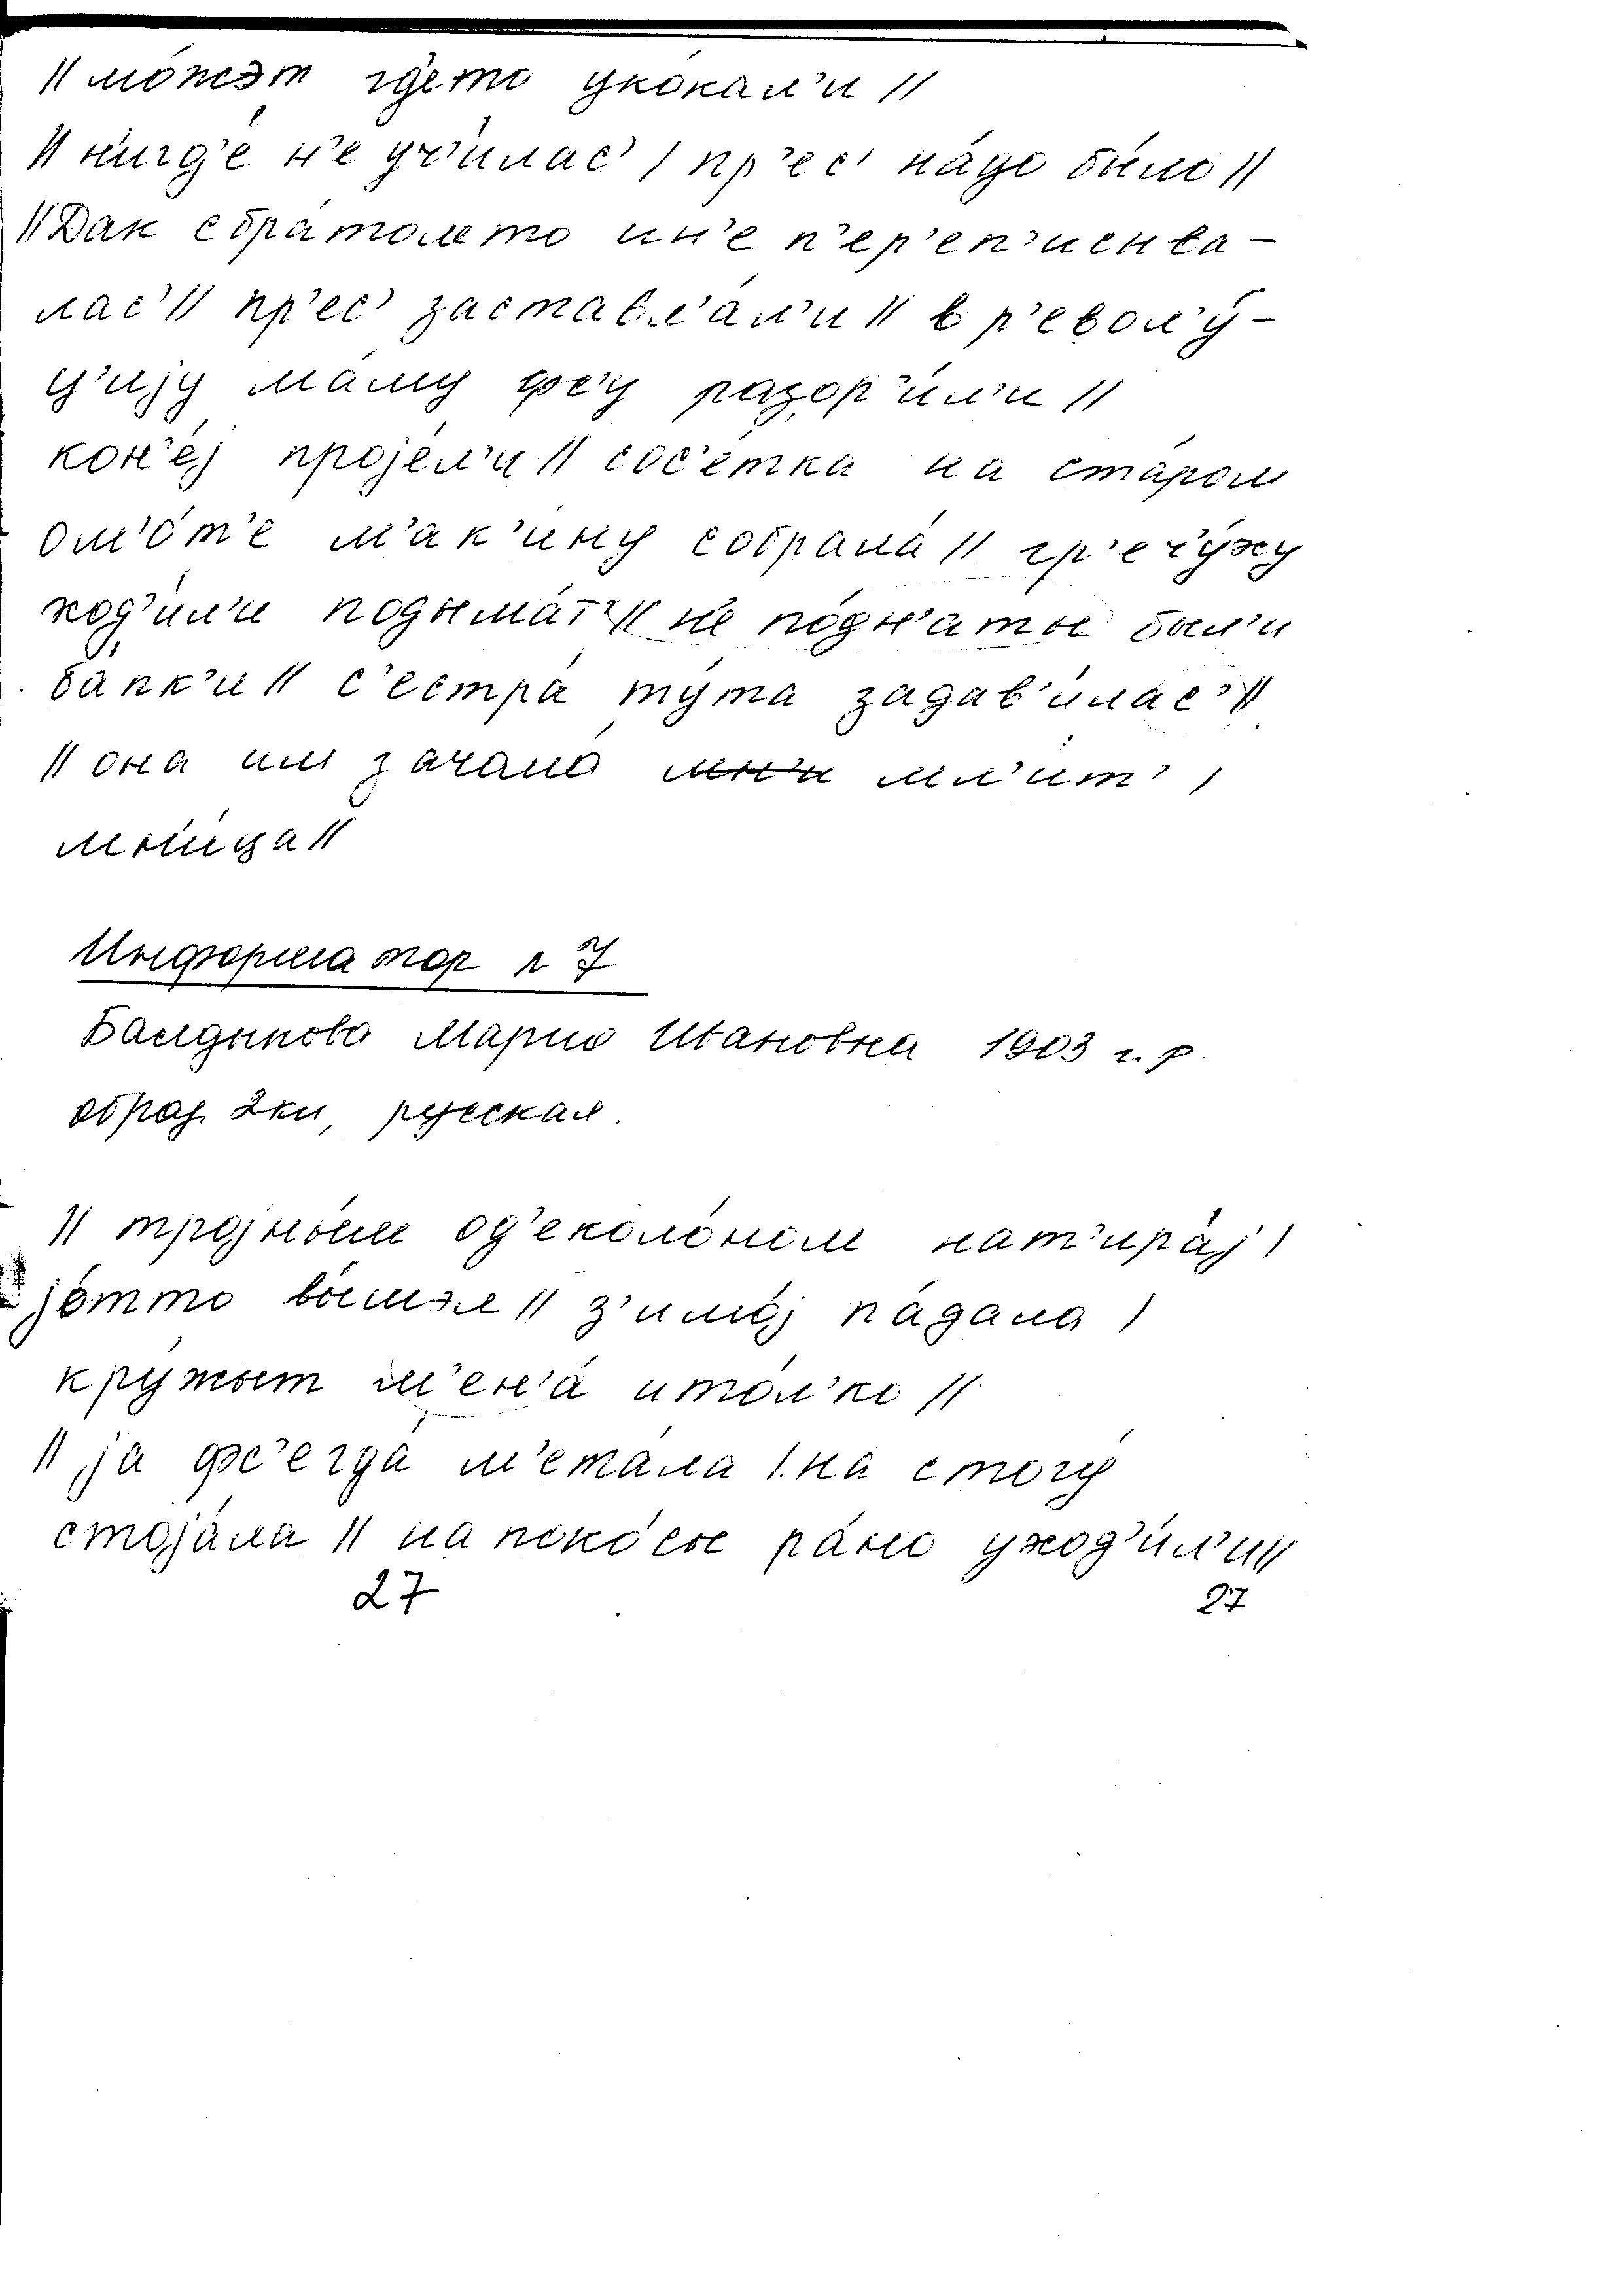 // мо́жэт где́то уко́кал'и //
// н'игд'е́ н'е уч'и́лас' / пр'ес' на́до бы́ло //
// Дак с бра́томето и н'е п'ер'еп'исыва-
лас' // пр'ес' заставл'а́л'и // в р'евол'у́-
ц'иjу ма́му фс'у разор'и́л'и //
кон'е́j проjе́л'и // сос'е́тка на ста́ром
ом'о́т'е м'ак'и́ну собрала́ // гр'еч'у́ху
ход'и́л'и подыма́т' // н'е по́дн'аты был'и
ба́пк'и // с'естра́ ту́та задав'и́лас' //
// она им зачала́ мл'ит' /
мы́ица //
Информатор № 7
Мария Ивановна 1903 г. р.
образ. 2 кл, русская.
// троjны́м од'еколо́ном нат'ира́j /
jо́тто вы́шэл // з'имо́j па́дала /
кру́жыт м'ен'а́ и то́л'ко //
// jа фс'егда́ м'ета́ла / на стогу́
стоjа́ла // на поко́сы ра́но уход'и́л'и //
27 27